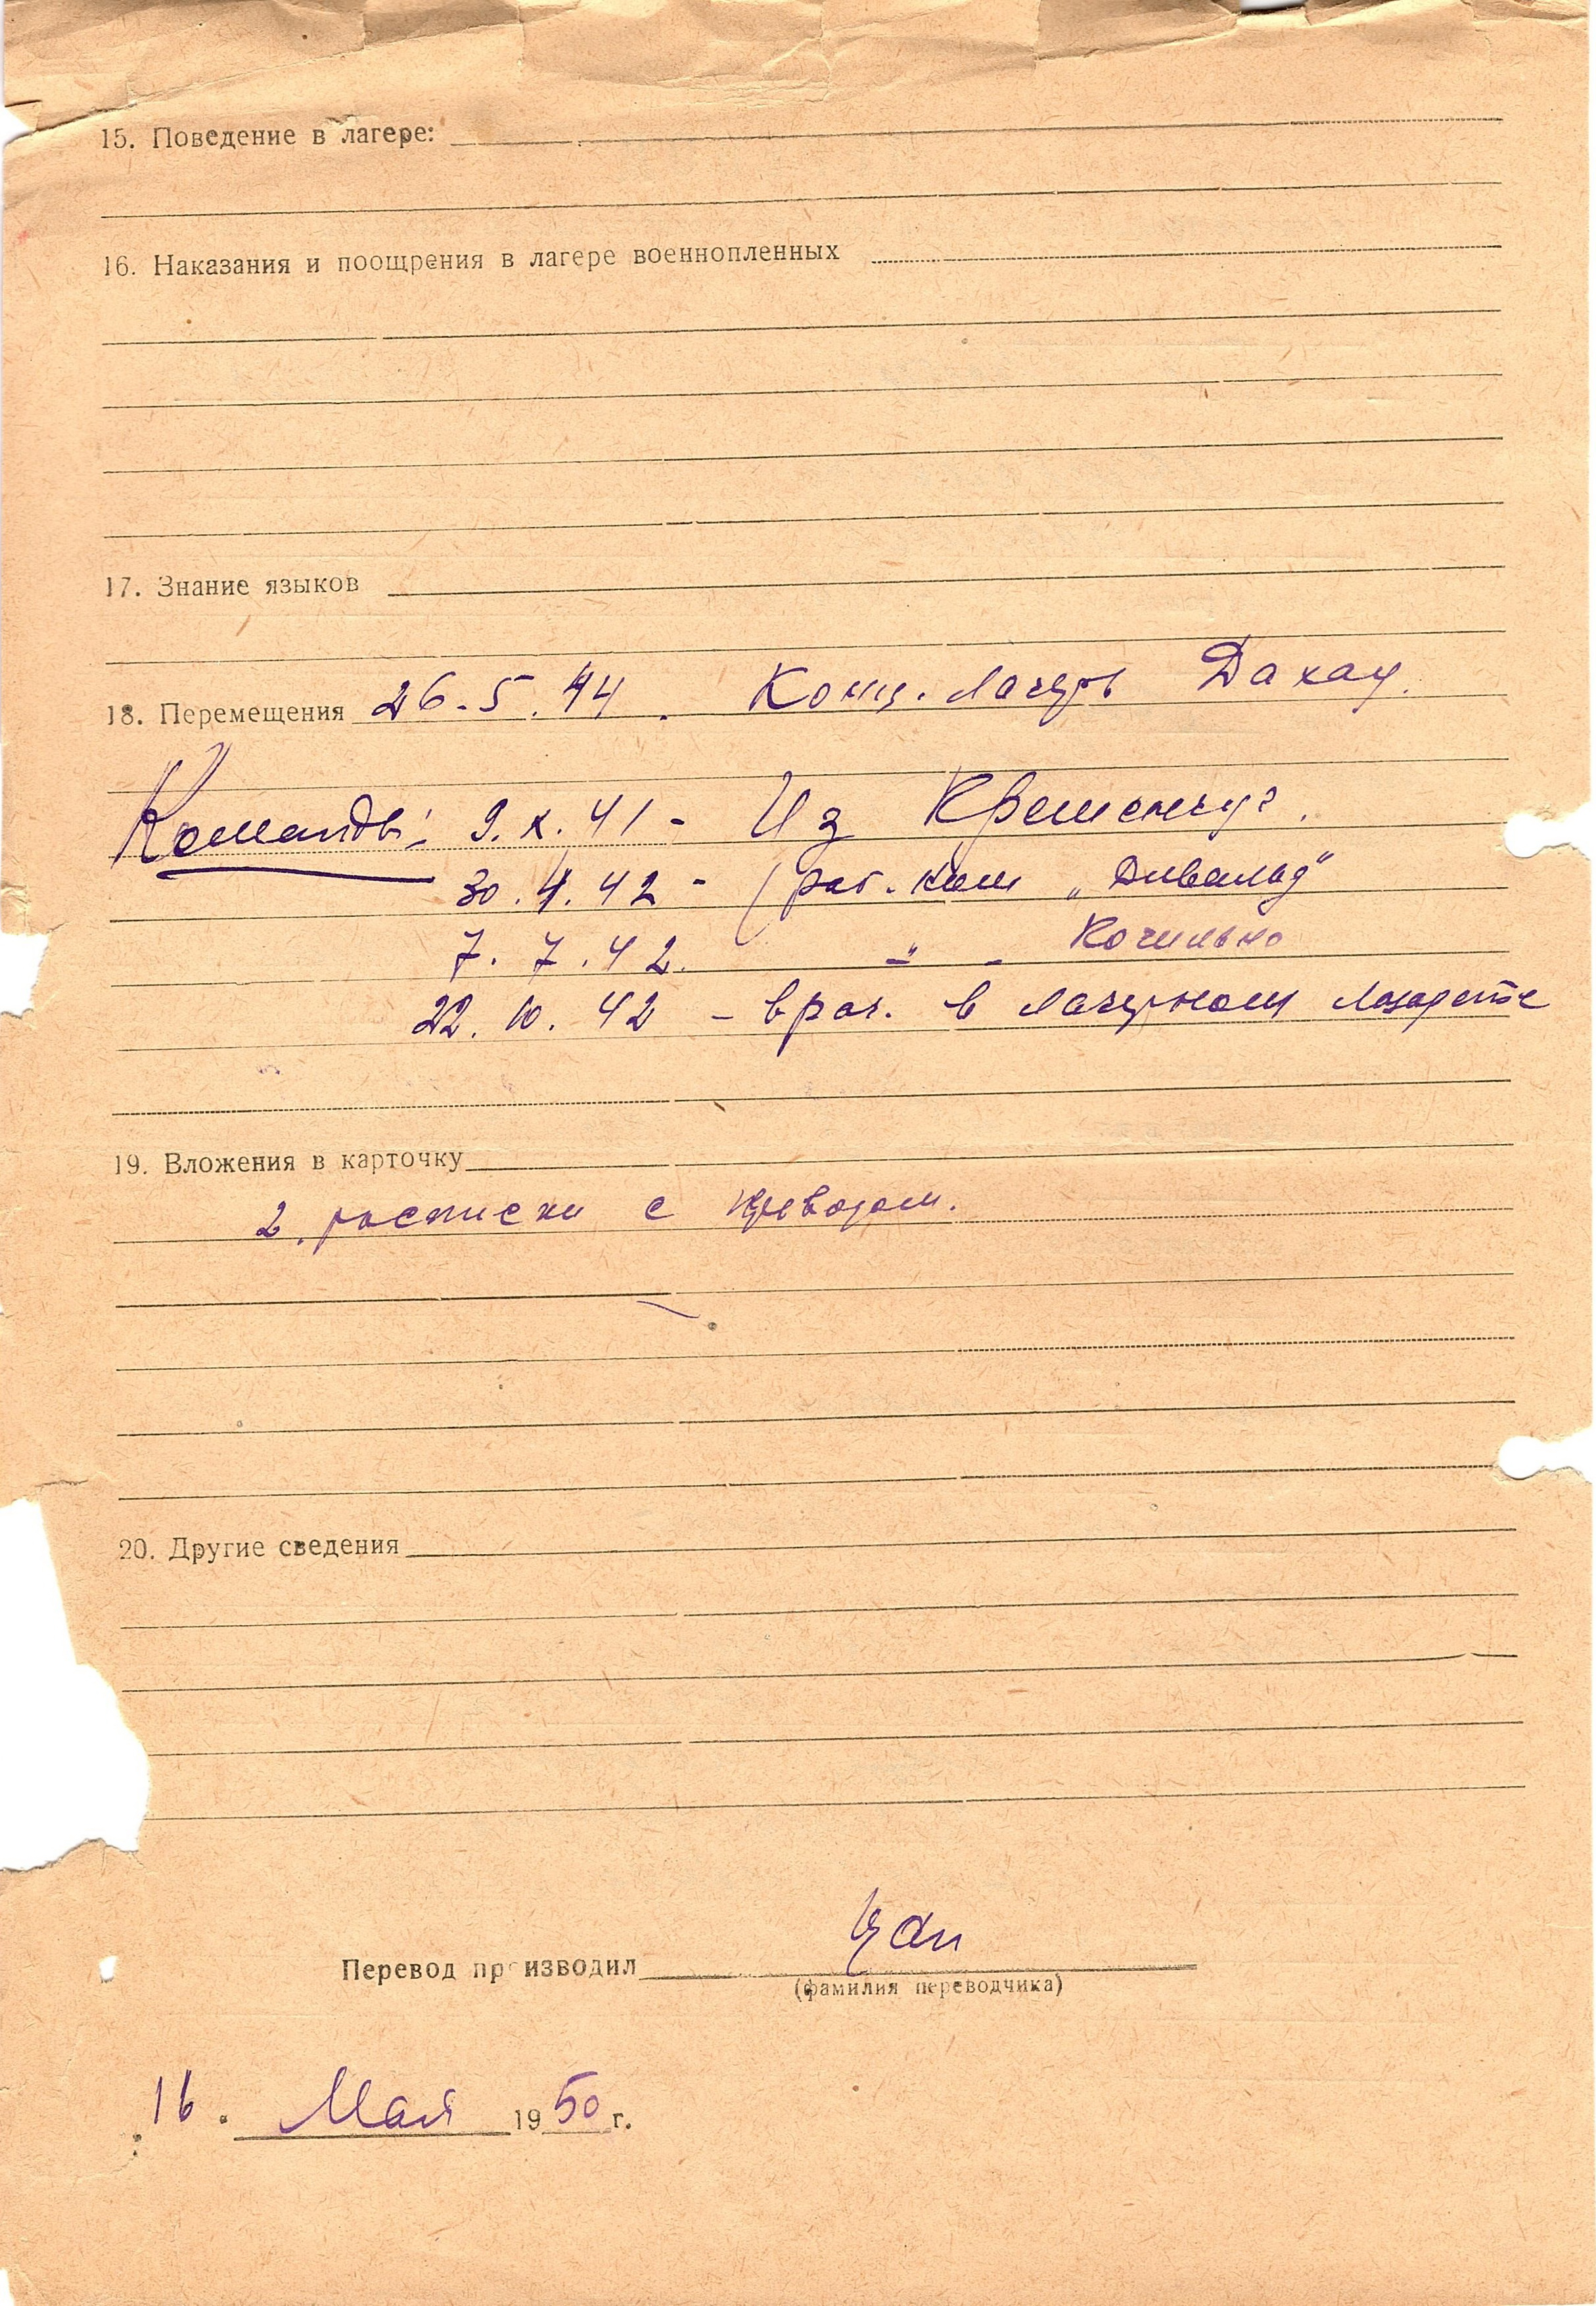 15. Поведение в лагере:
16. Наказания и поощрения в лагере военнопленных
17. Знание языков
18. Перемещения 26.5.44. Конц. лагерь Дахау.
Команды: 9.X.41 - Из Кременчуг.
30.4.42 - раб. ком "
7.7.42. - " -
22.10.42 - врач. в лагерном лазарете
19. Вложения в карточку
2. расписки с переводом.
20. Другие сведения
Перевод производил
(фамилия переводчика)
16. Мая 1950 г.